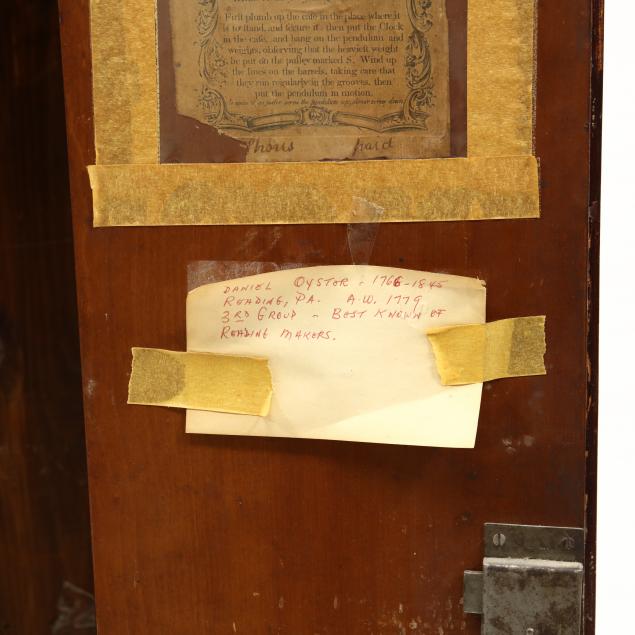 First plumb up the case in the place where it
is to stand, and secure it: then put the Clock
in the case, and hang on the pendulum and
weights, observing that the heaviest weight
be put on the pulley marked S. Wind up
the lines on the barrels, taking care that
they run regularly in the grooves, then
put the pendulum in motion.
DANIEL OYSTER - 1766-1845
READING, PA. A.W. 1779
3RD GROUP - BEST KNOWN OF
READING MAKERS.